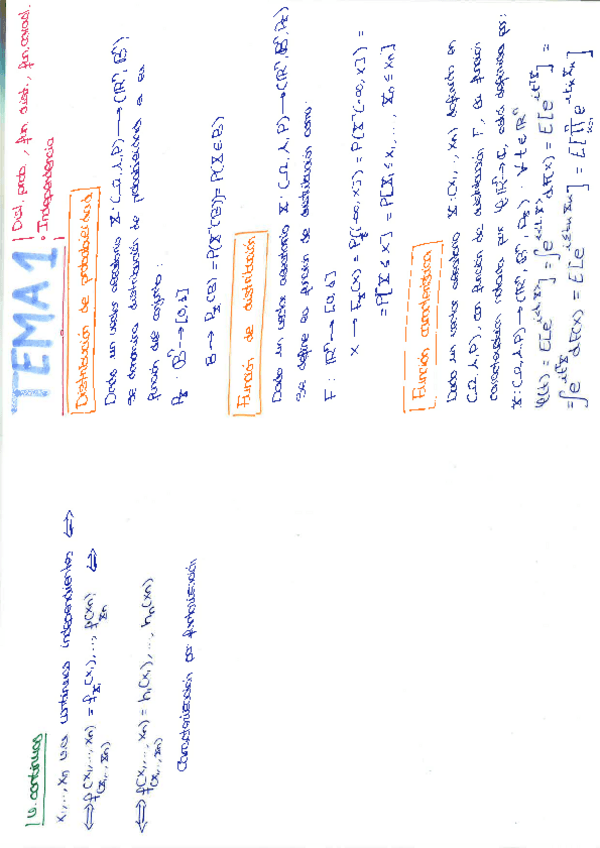 TEMA 1
Dist. prob., fun. dist., fun. caract.
• Independencia
Distribución de probabilidad
Dado un vector aleatorio X: (Ω, A, P) → (ℝⁿ, Bⁿ)
se denomina distribución de probabilidad a la
función de conjunto:
P_X : Bⁿ → [0,1]
B → P_X(B) = P(X⁻¹(B)) = P(X ∈ B)
Función de distribución
Dado un vector aleatorio X: (Ω, A, P) → (ℝⁿ, Bⁿ, P_X)
se define la función de distribución como:
F: ℝⁿ → [0,1]
x → F_X(x) = P_X((-∞, x]) = P(X⁻¹(-∞, x]) =
= P[X ≤ x] = P[X₁ ≤ x₁, ..., Xₙ ≤ xₙ]
Función característica
Dado un vector aleatorio X: (X₁, ..., Xₙ) definido en
(Ω, A, P), con función de distribución F, la función
característica notada por φ: ℝⁿ → ℂ, está definida por:
X: (Ω, A, P) → (ℝⁿ, Bⁿ, P_X) . ∀ t ∈ ℝⁿ
φ(t) = E[e^{i
= ∫ e
dF(x) = E[e
v. continuas
X₁, ..., Xₙ v.a. continuas independientes ⟺
⟺ f_(X₁,...,Xₙ)(x₁, ..., xₙ) = f_X₁(x₁), ..., f_Xₙ(xₙ) ⟺
⟺ f_(X₁,...,Xₙ)(x₁, ..., xₙ) = h₁(x₁), ..., hₙ(xₙ)
Caracterización por factorización